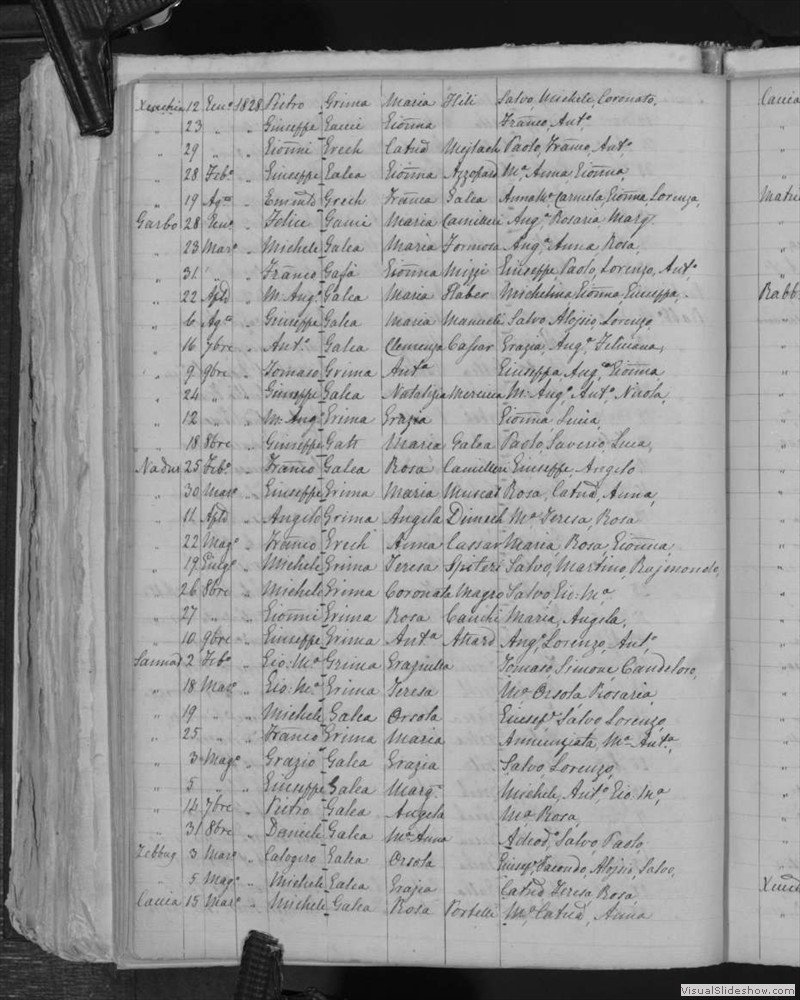 Xeuchia 12 Gen.o 1828 Pietro Grima Maria Hili Salvo, Michele, Coronato,
„ 23 „ „ Giuseppe Gauci Gionna Franco, Ant.o
„ 29 „ „ Gionni Grech Catnd Mejlach Paolo, Franco, Ant.o
„ 28 Feb.o „ Giuseppe Galea Gionna Azzopard M.a Anna, Gionna,
„ 19 Ag.to „ Grech Franca Galea Anna M.a Carmela, Gionna, Lorenza,
Garbo 28 Gen.o „ Felice Gauci Maria Camilleri Ang.a Rosaria, Marg.
„ 23 Mar.o „ Michele Galea Maria Formosa Ang.a Anna Rosa,
„ 31 „ „ Franco Gafà Gionna Mizzi Giuseppe, Paolo, Lorenzo, Ant.o
„ 22 Aple „ M. Ang.o Galea Maria Haber Michelina, Gionna, Giuseppa,
„ 6 Ag.to „ Giuseppe Galea Maria Manueli Salvo, Alojsio, Lorenzo,
„ 16 7bre „ Ant.o Galea Clemenza Cassar Grazia, Ang.a Feliciana,
„ 9 9bre „ Tomaso Grima Ant.a Giuseppa, Ang.a Gionna
„ 24 „ „ Giuseppe Galea Natalizia Mercieca M. Ang.o Ant.o Nicola,
„ 12 „ „ M. Ang. Grima Grazia Gionna, Lucia,
„ 18 8bre „ Giuseppe Gatt Maria Galea Paolo, Saverio, Luca,
Nadur 25 Feb.o „ Franco Galea Rosa Camilleri Giuseppe, Angelo
„ 30 Mar.o „ Giuseppe Grima Maria Muscat Rosa, Catnd, Anna,
„ 11 Aple „ Angelo Grima Angela Dimech M.a Teresa, Rosa
„ 22 Mag.o „ Franco Grech Anna Cassar Maria, Rosa, Gionna,
„ 19 Giug.o „ Michele Grima Teresa Spiteri Salvo, Martino, Rajmondo,
„ 26 8bre „ Michele Grima Coronata Magro Salvo, Gio: M.a
„ 27 „ „ Gionni Grima Rosa Cauchi Maria, Angela,
„ 10 9bre „ Giuseppe Grima Ant.a Attard Ang.o Lorenzo, Ant.o
Sannad 2 Feb.o „ Gio: M.a Grima Graziulla Tomaso, Simone, Candeloro,
„ 18 Mar.o „ Gio: M.a Grima Teresa M.a Orsola, Rosaria,
„ 19 „ „ Michele Galea Orsola Giusep.e Salvo Lorenzo
„ 25 „ „ Franco Grima Maria Annunziata, M.a Ant.a,
„ 3 Mag.o „ Grazio Galea Grazia Salvo, Lorenzo,
„ 5 „ „ Giuseppe Galea Marg. Michele, Ant.o Gio: M.a,
„ 14 7bre „ Pietro Galea Angela M.a Rosa,
„ 31 8bre „ Daniele Galea M.a Anna Adeod.o Salvo, Paolo,
Zebbug 3 Mar.o „ Calogero Galea Orsola Giusep.e Facondo, Alojsio, Salvo,
„ 5 Mag.o „ Michele Galea Grazia Catnd Teresa Rosa
Caccia 15 Mar.o „ Michele Galea Rosa Portelli M.a Catnd, Anna
Caccia
Rabb
VisualSlideshow.com